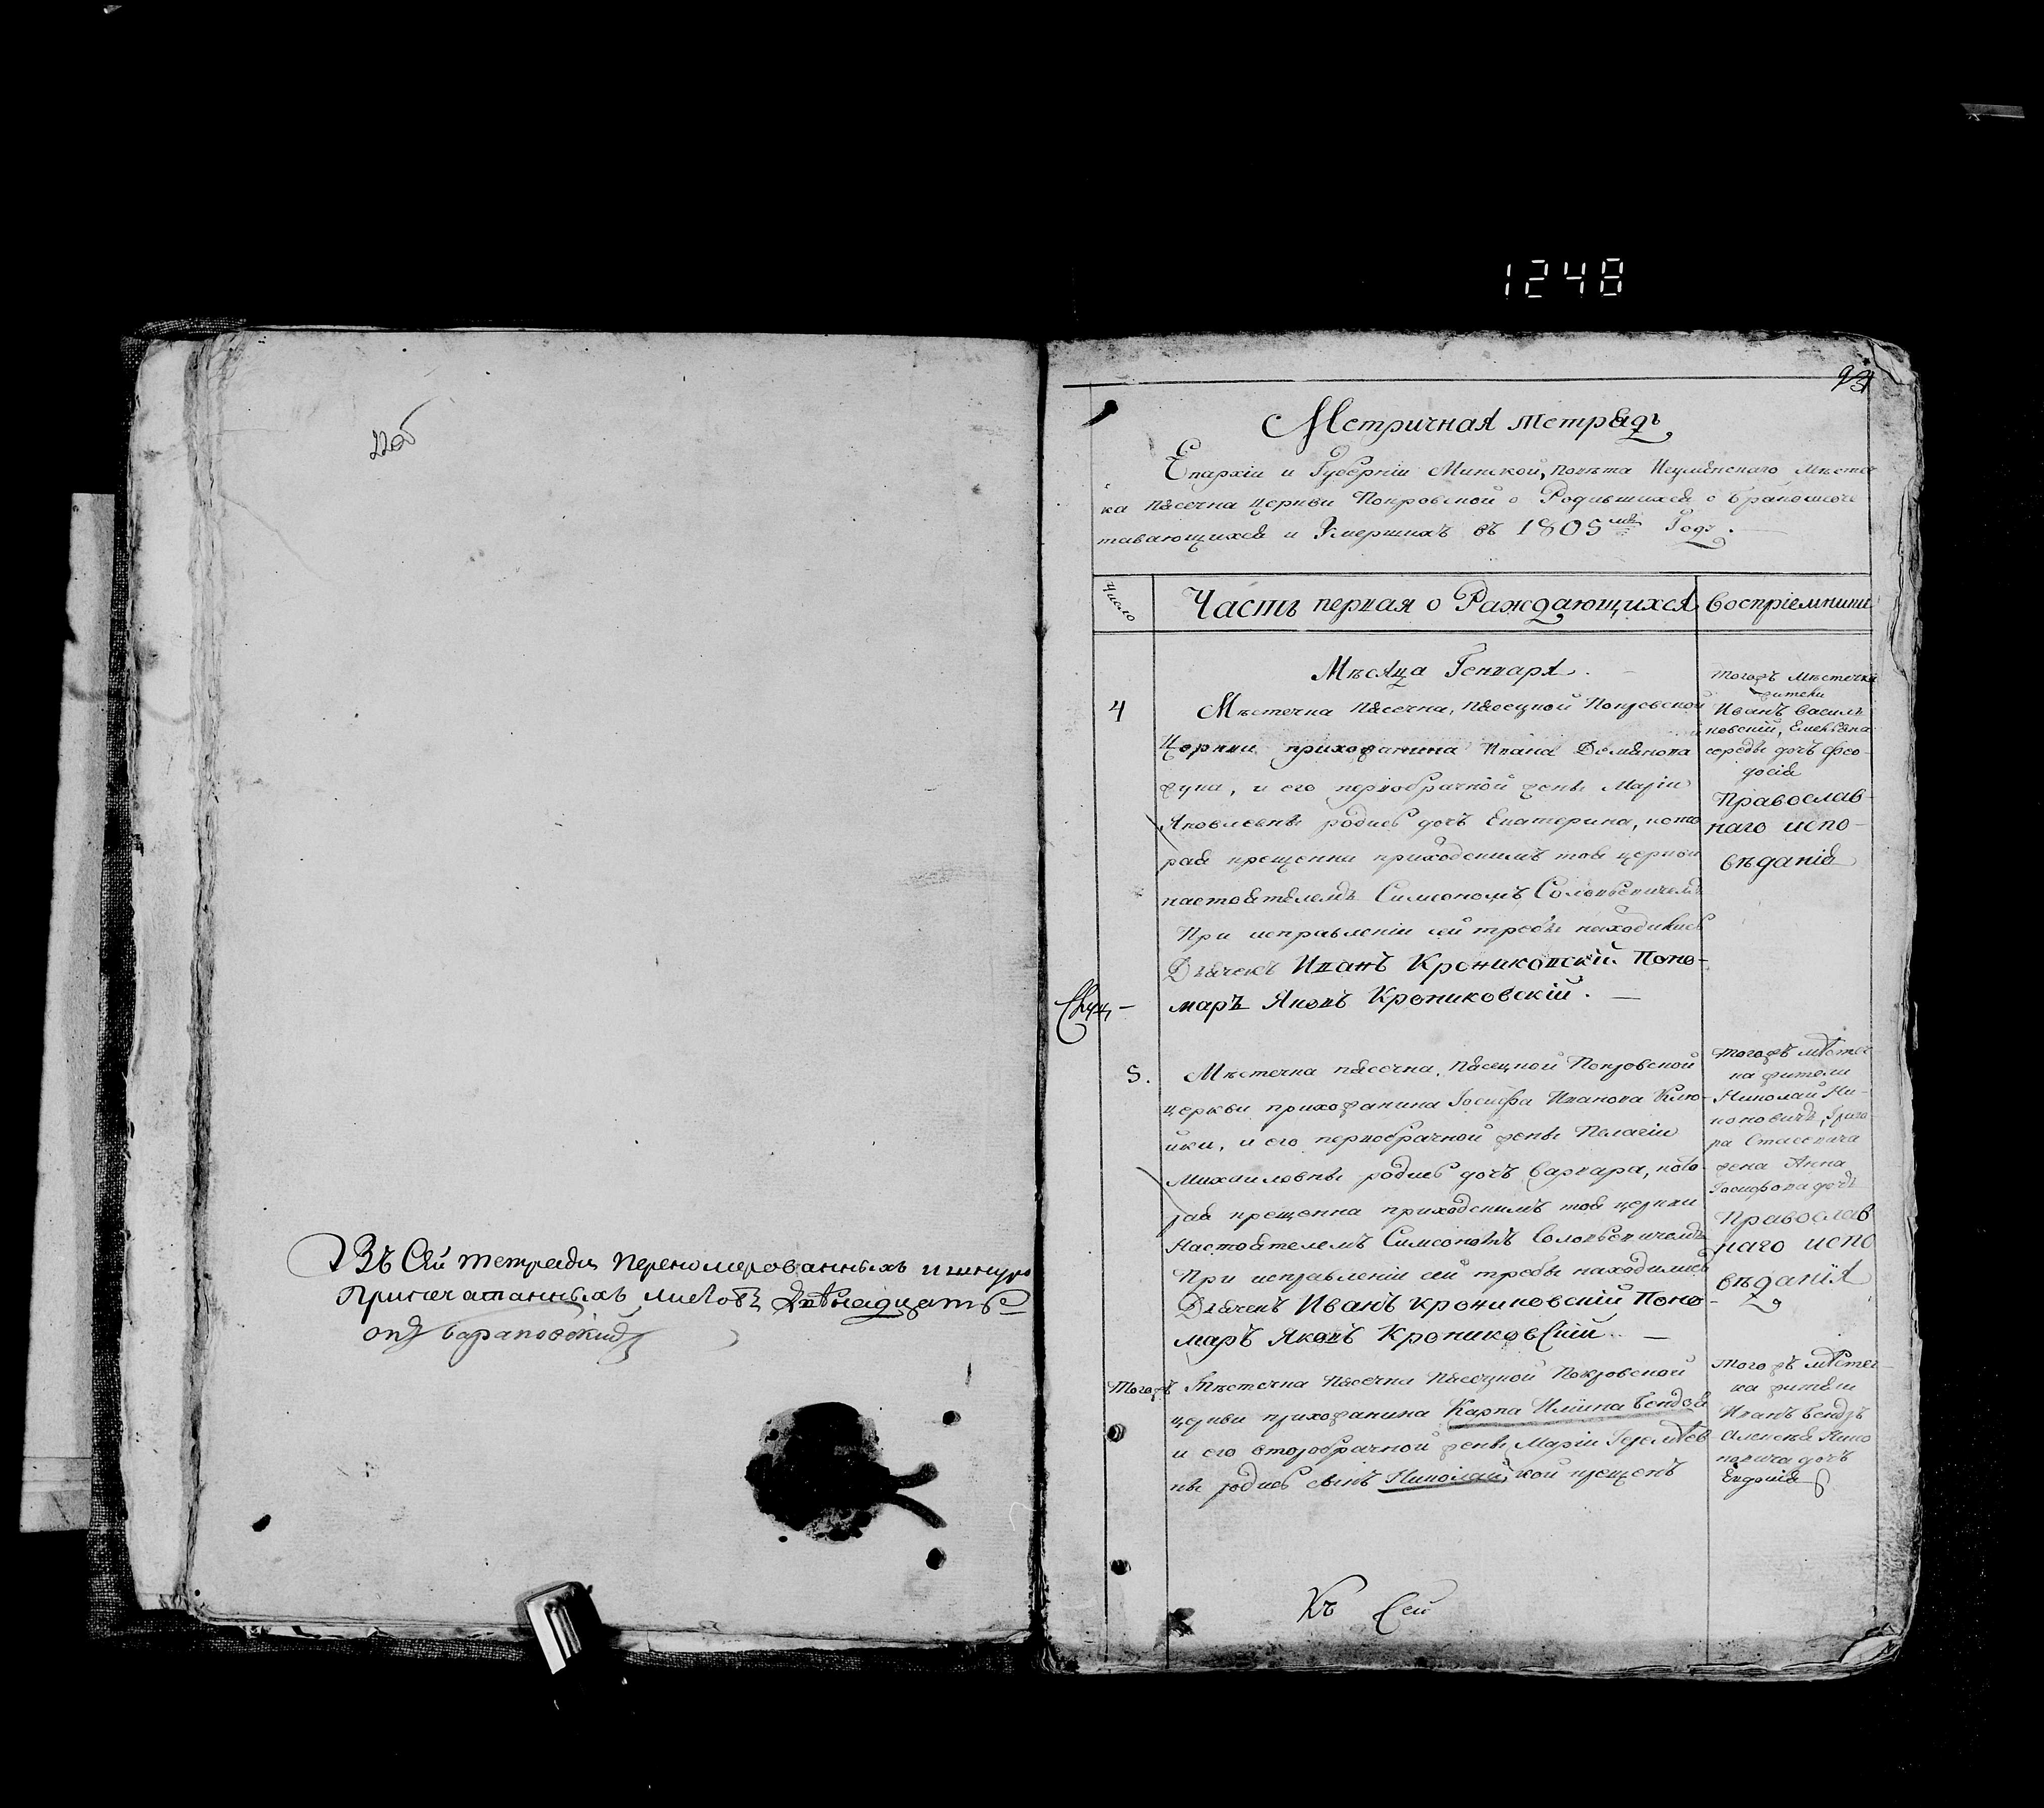 1248
22об
Въ Сей тетради перенумерованныхъ и шнуро
припечатанныхъ листовъ двѣнадцать
Барановскій
23
Метричная тетрадь
Епархіи и Губерніи Минской, повѣта Игуменскаго мѣстеч
ка Пясечна церкви Покровской о Родившихся о бракосоче
тавающихся и Умершихъ въ 1805мъ Годѣ.
Число
Часть первая о Раждающихся
Воспріемники
Мѣсяца Генваря.
4
Мѣстечка Пясечна, Пясецкой Покровской
Церкви прихожанина Ивана Демянова
и его первобрачной жены Маріи
Яковлевны родись дочъ Екатерина, кото
рая крещенна приходскимъ тоя церкви
настоятелемъ Симеономъ Соловьевичемъ
При исправленіи сей требы находились
Дьячекъ Иванъ Крониковскій Поно-
маръ Яковъ Крониковскій.
Тогожъ Мѣстечка
жители
Иванъ Василь
ковскій,
дочъ Фео-
досія
Православ-
наго испо-
вѣданія
5.
Мѣстечка Пясечна, Пясецкой Покровской
церкви прихожанина Іосифа Иванова
и его первобрачной жены Пелагіи
Михайловны родись дочъ Варвара, кото-
рая крещенна приходскимъ тоя церкви
Настоятелемъ Симеономъ Соловьевичемъ
При исправленіи сей требы находились
Дьячекъ Иванъ Крониковскій Поно-
маръ Яковъ Крониковскій.
Тогожъ мѣстеч
ка жители
Николай Ни-
коновичъ, Григо-
ра Стасевича
жена Анна
Іосифова дочъ
Православ
наго испо
вѣданія
Тогожъ
Мѣстечка Пясечна Пясецкой Покровской
церкви прихожанина Карпа Илїина Бендзя
и его второбрачной жены Маріи
ны родись сынъ Николай, кой крещенъ
Тогожъ мѣстеч-
ка жители
Иванъ Бендзь
Алексѣя Нико
новича дочъ
Евдокія
Къ Сей